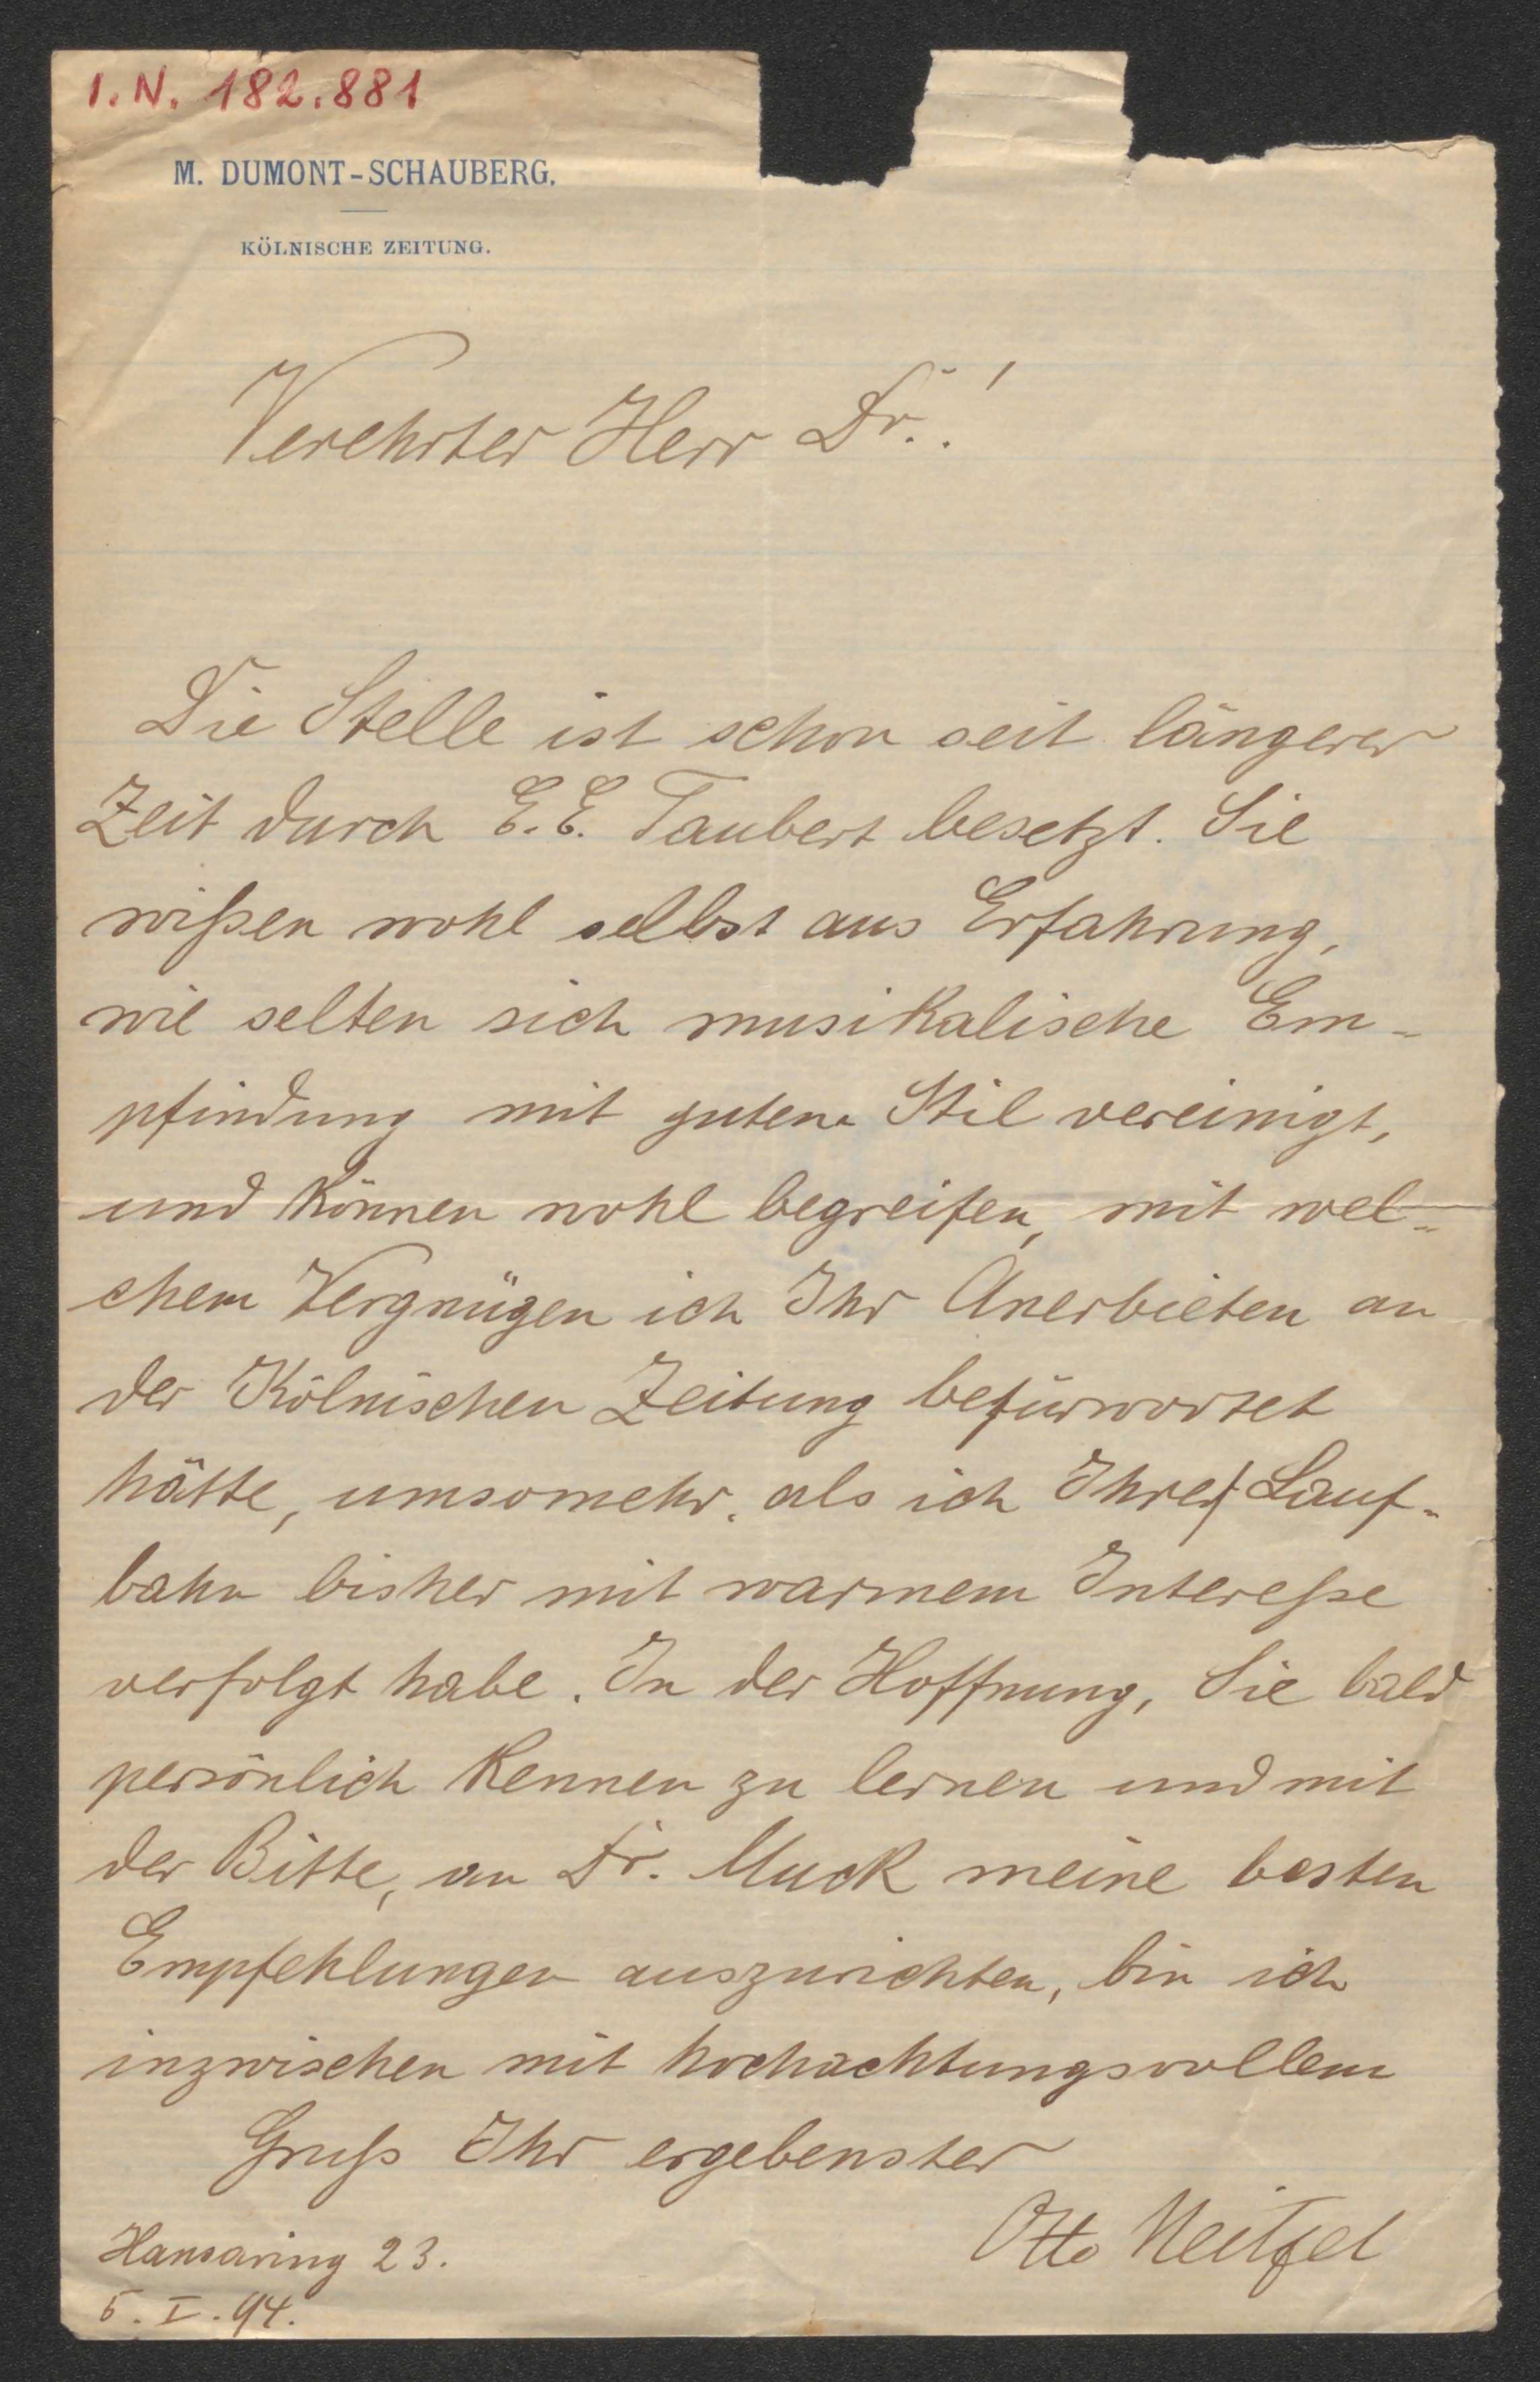 I.N. 182.881
M. DUMONT-SCHAUBERG.
KÖLNISCHE ZEITUNG.
Verehrter Herr Dr.!
Die Stelle ist schon seit längerer
Zeit durch E. E. Taubert besetzt. Sie
wißen wohl selbst aus Erfahrung,
wie selten sich musikalische Em-
pfindung mit gutem Stil vereinigt,
und können wohl begreifen, mit wel-
chem Vergnügen ich Ihr Anerbieten an
der Kölnischen Zeitung befürwortet
hätte, umsomehr, als ich Ihre Lauf-
bahn bisher mit warmem Intereße
verfolgt habe. In der Hoffnung, Sie bald
persönlich kennen zu lernen und mit
der Bitte, an Dr. Muck meine besten
Empfehlungen auszurichten, bin ich
inzwischen mit hochachtungsvollem
Gruß Ihr ergebenster
Otto Neitzel
Hansaring 23.
5. I. 94.